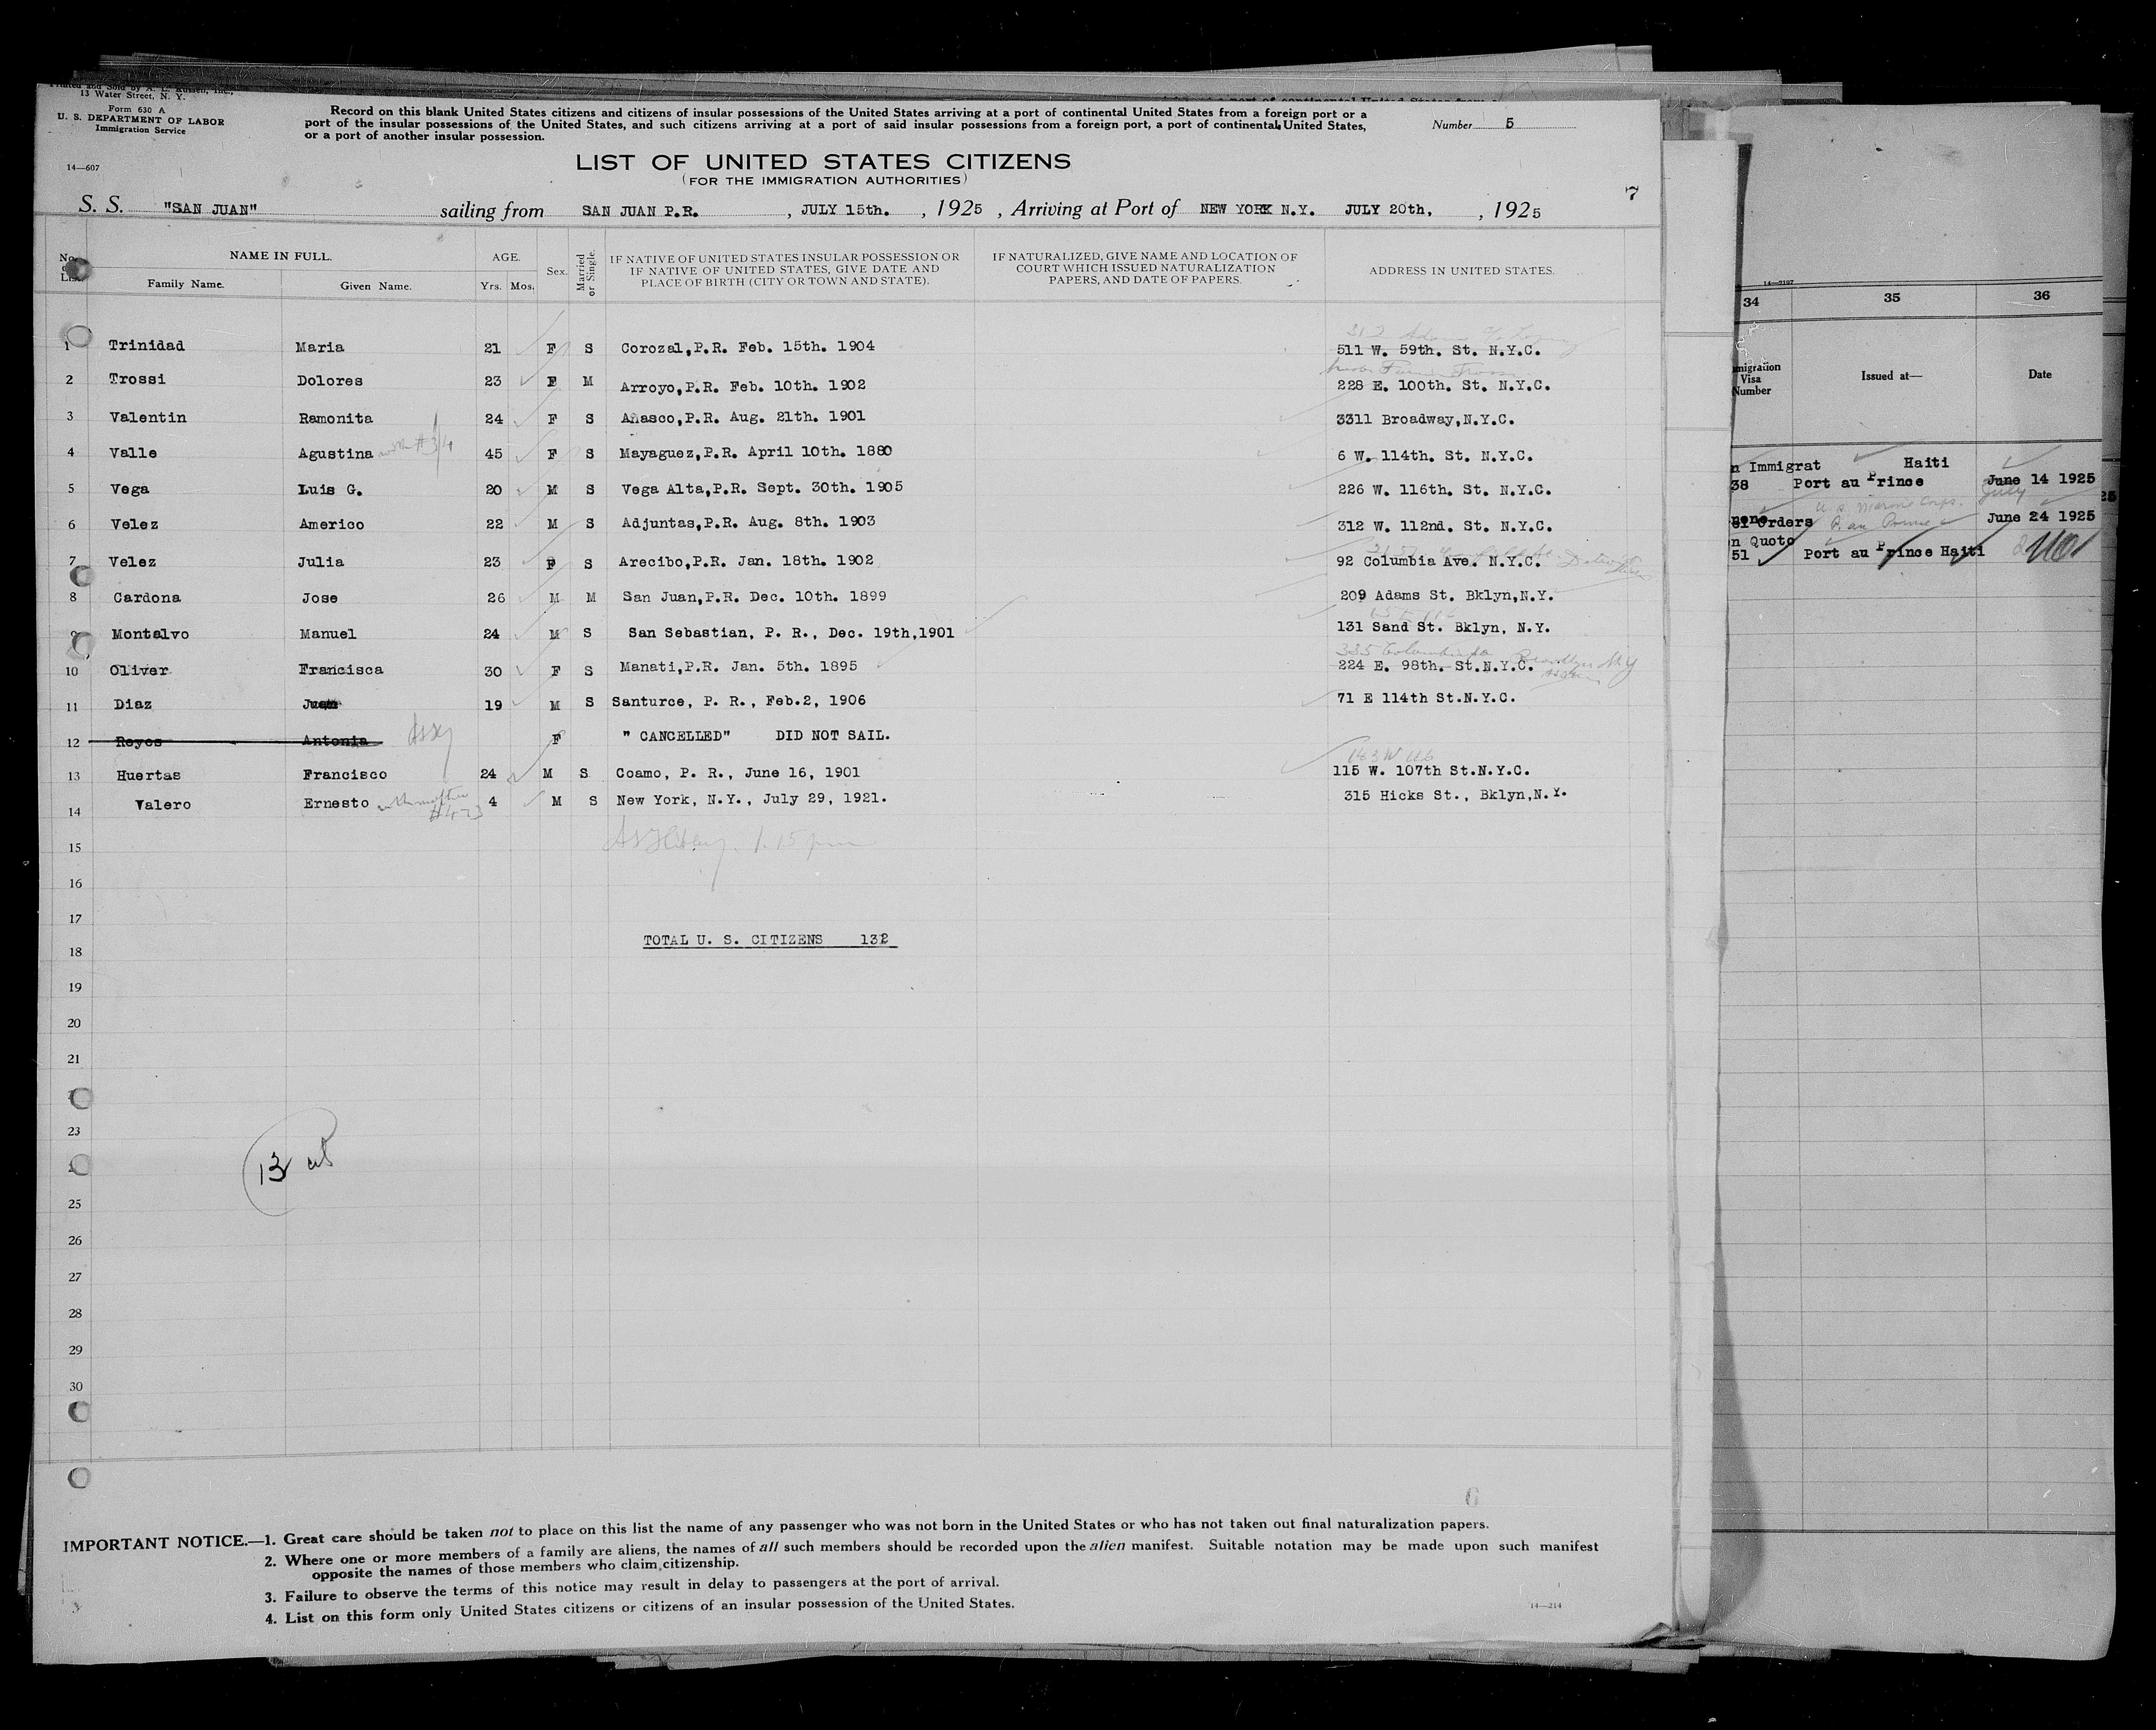 13 Water Street, N. Y.
Form 630 A
U. S. DEPARTMENT OF LABOR
Immigration Service
14—607
Record on this blank United States citizens and citizens of insular possessions of the United States arriving at a port of continental United States from a foreign port or a
port of the insular possessions of the United States, and such citizens arriving at a port of said insular possessions from a foreign port, a port of continental United States,
or a part of another insular possession.
Number 5
LIST OF UNITED STATES CITIZENS
(FOR THE IMMIGRATION AUTHORITIES)
7
S. S. "SAN JUAN" sailing from SAN JUAN P.R. , JULY 15th. , 1925 , Arriving at Port of NEW YORK N.Y. JULY 20th, , 1925
NAME IN FULL. AGE. Sex. Married or Single. IF NATIVE OF UNITED STATES INSULAR POSSESSION OR
IF NATIVE OF UNITED STATES, GIVE DATE AND
PLACE OF BIRTH (CITY OR TOWN AND STATE).
IF NATURALIZED, GIVE NAME AND LOCATION OF
COURT WHICH ISSUED NATURALIZATION
PAPERS, AND DATE OF PAPERS.
ADDRESS IN UNITED STATES.
Family Name. Given Name. Yrs. Mos.
1 Trinidad Maria 21 F S Corozal,P.R. Feb. 15th. 1904 511 W. 59th. St. N.Y.C.
2 Trossi Dolores 23 F M Arroyo,P.R. Feb. 10th. 1902 228 E. 100th. St. N.Y.C.
3 Valentin Ramonita 24 F S Anasco,P.R. Aug. 21th. 1901 3311 Broadway,N.Y.C.
4 Valle Agustina 45 F S Mayaguez,P.R. April 10th. 1880 6 W. 114th. St. N.Y.C.
5 Vega Luis G. 20 M S Vega Alta,P.R. Sept. 30th. 1905 226 W. 116th. St. N.Y.C.
6 Velez Americo 22 M S Adjuntas,P.R. Aug. 8th. 1903 312 W. 112nd. St. N.Y.C.
7 Velez Julia 23 F S Arecibo,P.R. Jan. 18th. 1902 92 Columbia Ave. N.Y.C.
8 Cardona Jose 26 M M San Juan,P.R. Dec. 10th. 1899 209 Adams St. Bklyn,N.Y.
9 Montalvo Manuel 24 M S San Sebastian, P. R., Dec. 19th,1901 131 Sand St. Bklyn, N.Y.
10 Oliver Francisca 30 F S Manati,P.R. Jan. 5th. 1895 224 E. 98th. St.N.Y.C.
11 Diaz Juan 19 M S Santurce, P. R., Feb.2, 1906 71 E 114th St.N.Y.C.
12 Reyes Antonia F " CANCELLED" DID NOT SAIL.
13 Huertas Francisco 24 M S Coamo, P. R., June 16, 1901 115 W. 107th St.N.Y.C.
14 Valero Ernesto 4 M S New York, N.Y., July 29, 1921. 315 Hicks St., Bklyn,N.Y.
15
16
17
TOTAL U. S. CITIZENS 132
18
19
20
21
23
13
25
26
27
28
29
30
6
IMPORTANT NOTICE.—1. Great care should be taken not to place on this list the name of any passenger who was not born in the United States or who has not taken out final naturalization papers.
2. Where one or more members of a family are aliens, the names of all such members should be recorded upon the alien manifest. Suitable notation may be made upon such manifest
opposite the names of those members who claim citizenship.
3. Failure to observe the terms of this notice may result in delay to passengers at the port of arrival.
4. List on this form only United States citizens or citizens of an insular possession of the United States.
14—214
34 35 36
Visa
Number
Issued at—
Date
n Immigrat Haiti
38 Port au Prince June 14 1925
July
Orders June 24 1925
n Quoto
51 Port au Prince Haiti